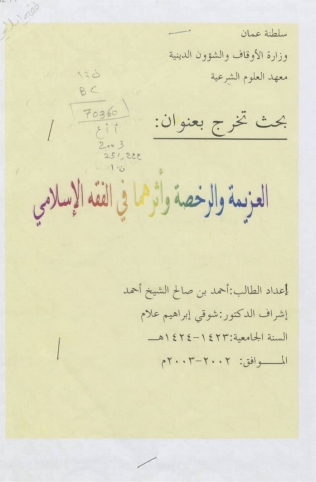 سلطنة عمان
وزارة الأوقاف والشؤون الدينية
معهد العلوم الشرعية
BC
70360
2003
بحث تخرج بعنوان:
العزيمة والرخصة وأثرهما في الفقه الإسلامي
إعداد الطالب:أحمد بن صالح الشيخ أحمد
إشراف الدكتور:شوقي إبراهيم علام
السنة الجامعية:١٤٢٣-١٤٢٤هـــ
المــــوافق: ٢٠٠٢-٢٠٠٣م